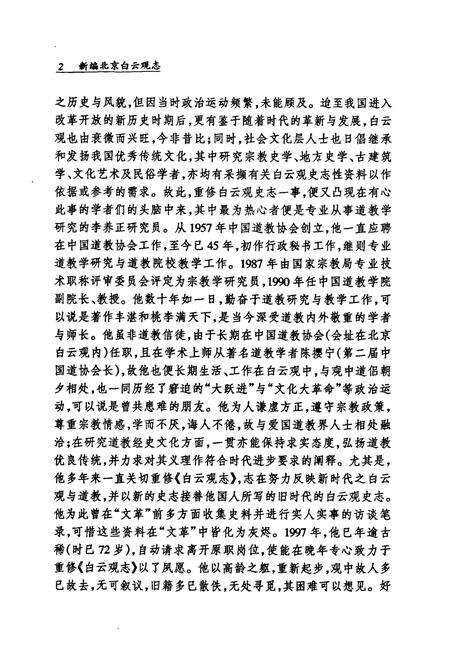 2 新编北京白云观志
之历史与风貌,但因当时政治运动频繁,未能顾及。迨至我国进入
改革开放的新历史时期后,更有鉴于随着时代的革新与发展,白云
观也由衰微而兴旺,今非昔比;同时,社会文化层人士也日倡继承
和发扬我国优秀传统文化,其中研究宗教史学、地方史学、古建筑
学、文化艺术及民俗学者,亦均有采撷有关白云观史志性资料以作
依据或参考的需求。故此,重修白云观史志一事,便又凸现在有心
此事的学者们的头脑中来,其中最为热心者便是专业从事道教学
研究的李养正研究员。从1957年中国道教协会创立,他一直应聘
在中国道教协会工作,至今已45年,初作行政秘书工作,继则专业
道教学研究与道教院校教学工作。1987年由国家宗教局专业技
术职称评审委员会评定为宗教学研究员,1990年任中国道教学院
副院长、教授。他数十年如一日,勤奋于道教研究与教学工作,可
以说是著作丰湛和桃李满天下,是当今深受道教内外敬重的学者
与师长。他虽非道教信徒,由于长期在中国道教协会(会址在北京
白云观内)任职,且在学术上师从著名道教学者陈撄宁(第二届中
国道协会长),故他也便长期生活、工作在白云观中,与观中道侣朝
夕相处,也一同历经了窘迫的“大跃进”与“文化大革命”等政治运
动,可以说是曾共患难的朋友。他为人谦虚方正,遵守宗教政策,
尊重宗教情感,学而不厌,诲人不倦,故与爱国道教界人士相处融
洽;在研究道教经史文化方面,一贯亦能保持求实态度,弘扬道教
优良传统,并力求对其义理作符合时代进步要求的阐释。尤其是,
他多年来一直关切重修《白云观志》,志在努力反映新时代之白云
观与道教,并以新的史志接替他国人所写的旧时代的白云观史志。
他为此曾在“文革”前多方面收集史料并进行实人实事的访谈笔
录,可惜这些资料在“文革”中皆化为灰烬。1997年,他已年逾古
稀(时已72岁),自动请求离开原职岗位,使能在晚年专心致力于
重修《白云观志》以了夙愿。他以高龄之躯,重新起步,观中故人多
已故去,无可叙议,旧籍多已散佚,无处寻觅,其困难可以想见。好